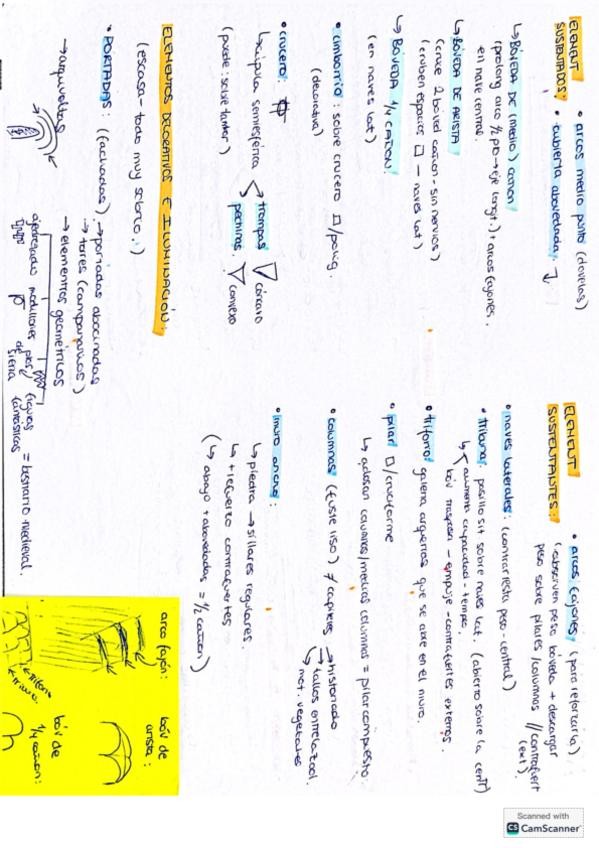 ELEMENT
SUSTENIDOS:
• arcos medio punto (dovelas)
• cubierta abovedada:
↳ BÓVEDA DE (medio) cañon
(prolong arco ½ pto → eje longit.) + arcos fajones.
en nave central.
↳ BÓVEDA DE ARISTA
(cruce 2 bóved cañon - sin nervios)
(cruben espacos □ - naves lat)
↳ BÓVEDA ¼ CAÑON:
(en naves lat)
• cimborrio: sobre crucero □/polig.
(decorativa)
• crucero:
↳ cúpula semiesférica
trompas cóncavo
pechinas convexo
(puede: sobre tambor)
ELEMENTOS DECORATIVOS E ILUMINACIÓN:
(escasa - todo muy sobrio.)
• PORTADAS: (fachadas)
→ portadas abocinadas
→ torres (campanarios)
→ elementos geométricos
→ arquivoltas
ajedrezado modillones dies/ figuras
de sierra fantásticas = bestiario medieval.
ELEMENT
SUSTENTANTES:
• arcos fajones (para reforzarla)
(absorven peso bóveda + descargar
peso sobre pilares /columnas // contrafuert
(ext)
• naves laterales: (contrarresta peso - central)
• tribuna: pasillo sit sobre naves lat. (abierto sobre la centr)
↳ aumenta capacidad - tempo.
bóv traspasa - empuje - contrafuertes externos.
• triforio galeria arquerias que se abre en el muro.
• pilar □/cruciforme
↳ adosan columnas/medias columnas = pilar compuesto.
• columnas (fuste liso) ≠ capiteles → historiado
→ tallos entrelazad.
mot. vegetales
• muro ancho:
↳ piedra → sillares regulares.
↳ + refuerzo contrafuertes
(↳ abajo + abovedadas = ½ cañon)
arco fajón:
bóv de
arista:
triforio
bóv de
¼ cañon:
Scanned with
CS CamScanner